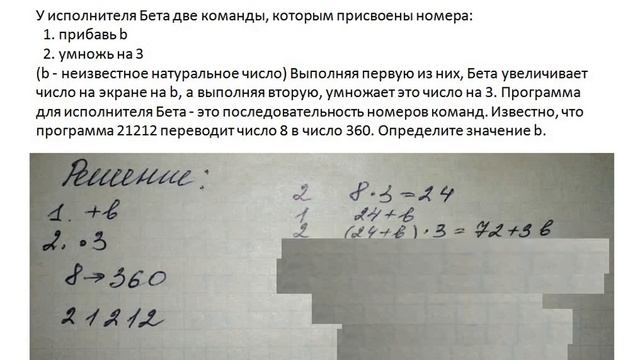 У исполнителя Бета две команды, которым присвоены номера:
1. прибавь b
2. умножь на 3
(b - неизвестное натуральное число) Выполняя первую из них, Бета увеличивает
число на экране на b, а выполняя вторую, умножает это число на 3. Программа
для исполнителя Бета - это последовательность номеров команд. Известно, что
программа 21212 переводит число 8 в число 360. Определите значение b.
Решение:
1. +в
2. •3
8→360
21212
2 8•3=24
1 24+в
2 (24+в)•3=72+3в